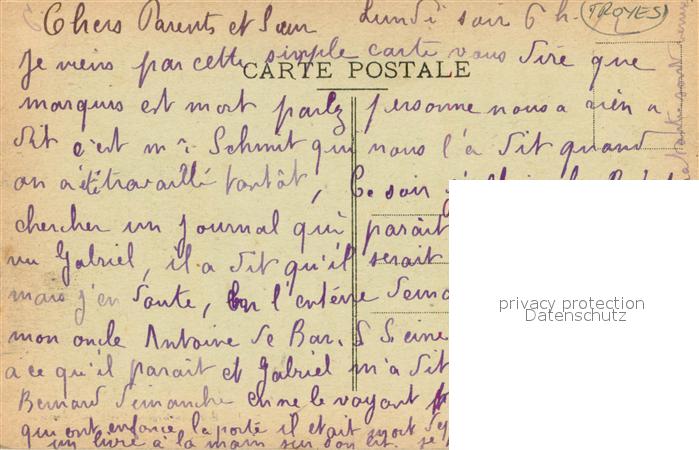 Chers Parents et Sœur Lundi soir 6 h. TROYES
Je viens par cette simple carte vous dire que
CARTE POSTALE
marquis est mort parlez personne nous a rien a
dit c'est mr Schmit qui nous l'a dit quand
on a été travaillé tantôt, Ce soir
chercher un journal qui parait
vu Gabriel, il a dit qu'il serait
mais j'en doute, on l'entérre
mon oncle Antoine de Bar. S Seine
a ce qu'il parait et Gabriel m'a dit
Bernard dimanche en ne le voyant
qui ont enfoncé la porte il était mort
un livre à la main sur son lit. je
privacy protection
Datenschutz